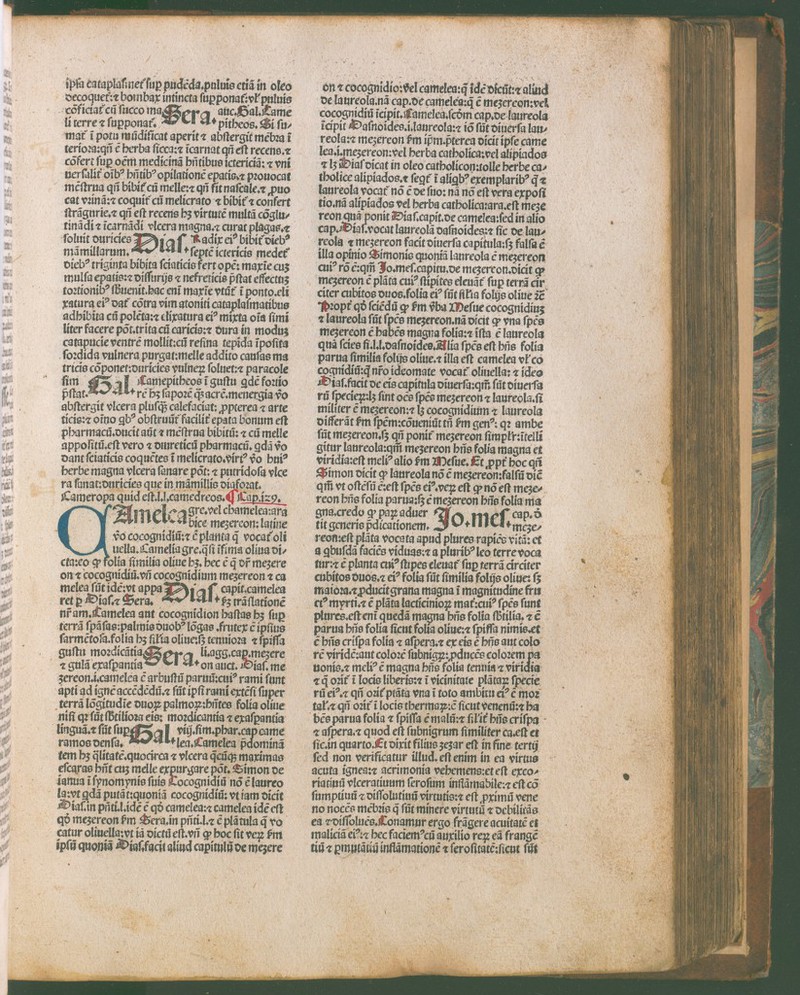 ipſa cataplaſmet᷑ ſup pudēda.puluis etiā in oleo
decoquet᷑:⁊ bombax intincta ſupponat᷑:vl᷑ puluis
cōficiat᷑ cū ſucco ma Sera. auc.Gal.Came
li terre ⁊ ſupponat᷑. pitheos. Si ſu-
mat᷑ ī potu mūdificat aperit ⁊ abſtergit mēbra ī
teriora:qn̄ ē herba ſicca:⁊ īcarnat qn̄ eſt recens.⁊
cōfert ſup oēm medicinā hn̄tibus ictericiā: ⁊ vni
uerſalit᷑ oībꝰ hn̄tibꝰ opilationē epatis.⁊ ꝓuocat
mēſtrua qn̄ bibit᷑ cū melle:⁊ qn̄ fit naſcale.⁊ ꝓuo
cat vrinā:⁊ coquit᷑ cū melicrato ⁊ bibit᷑ ⁊ confert
ſtrāgurie.⁊ qn̄ eſt recens hꝫ virtutē multā cōglu-
tinādi ⁊ īcarnādi vlcera magna.⁊ curat plagas.⁊
ſoluit duricies Diaſ Radix eiꝰ bibit᷑ diebꝰ
māmillarum. ſeptē ictericis medet᷑
diebꝰ triginta bibita ſciaticis fert opē: maxīe cuꝫ
mulſa epatis:⁊ diſſurijs ⁊ nefreticis p̄ſtat effectuꝫ
tortionibꝰ ſb̄uenit.hac enī maxīe vtūt᷑ ī ponto.eli
xatura eiꝰ dat᷑ cōtra vim atoniti cataplaſmatibus
adhibita cū polēta:⁊ elixatura eiꝰ mixta oīa ſimi
liter facere pōt.trita cū caricis:⁊ dura in moduꝫ
catapucie ventrē mollit:cū reſina tepida īpoſita
ſordida vulnera purgat:melle addito cauſas ma
tricis cōponet:duricies vulneꝝ ſoluet:⁊ paracole
ſim Gal. Camepitheos ī guſtu qdē fortio
p̄ſtat. rē hꝫ ſaporē qꝫ acrē.menergia ꝟo
abſtergit vlcera pluſqꝫ calefaciat: ꝓpterea ⁊ arte
ticis:⁊ oīno qbꝰ obſtruūt᷑ facilit᷑ epata bonum eſt
pharmacū.ducit aūt ⁊ mēſtrua bibitū: ⁊ cū melle
appoſitū.eſt vero ⁊ diureticū pharmacū. qdā ꝟo
dant ſciaticis coquētes ī melicrato.viriꝰ ꝟo huiꝰ
herbe magna vlcera ſanare pōt: ⁊ putridoſa vlce
ra ſanat:duricies que in māmillis diaforat.
Cameropa quid eſt.i.l.camedreos. ¶ Cap.129.
CAmelea gre.vel chamelea:ara
bice mezereon: latine
ꝟo cocognidiū:⁊ ē planta q̄ vocat᷑ oli
uella. Camelia gre.qſi īfima oliua di-
cta:eo ꝙ folia ſimilia oliue hꝫ. hec ē q̄ dr̄ mezere
on ⁊ cocognidiū.vn̄ cocognidium mezereon ⁊ ca
melea ſūt idē:vt appa Diaſ. capit.camelea
ret p Diaſ.⁊ Sera. ſꝫ trāſlationē
nr̄am. Camelea aut cocognidion haſtas hꝫ ſup
terrā ſpāſas:palmis duobꝰ lōgas .frutex ē ipſius
ſarmētoſa.folia hꝫ ſil᷑ia oliue:ſꝫ tenuiora ⁊ ſpiſſa
guſtu mordicātia Sera. li.agg.cap.mezere
⁊ gulā exaſpantia on auct. Diaſ. me
zereon.i.camelea ē arbuſtū paruū:cuiꝰ rami ſunt
apti ad ignē accēdēdū.⁊ ſūt ipſi rami extēſi ſuper
terrā lōgitudīe duoꝝ palmoꝝ:hn̄tes folia oliue
niſi qꝛ ſūt ſb̄tiliora eis: mordicantia ⁊ exaſpantia
linguā.⁊ ſūt ſup Gal. viij.ſim.phar.cap came
ramos denſa. lea.Camelea p̄dominā
tem hꝫ q̄litatē.quocirca ⁊ vlcera q̄cūqꝫ maximas
eſcaras hn̄t cuꝫ melle expurgare pōt. Simon de
ianua ī ſynonymis ſuis Cocognidiū nō ē laureo
la:vt qdā putāt:quoniā cocognidiū: vt iam dicit
Diaſ.in pn̄ti.l.idē ē qd̄ camelea:⁊ camelea idē eſt
qd̄ mezereon ẜm Sera.in pn̄ti.l.⁊ ē plātula q̄ vo
catur oliuella:vt iā dictū eſt.vn̄ ꝙ hoc ſit veꝝ ẜm
ipſū quoniā Diaſ.facit aliud capitulū de mezere
on ⁊ cocognidio:vel camelea:q̄ idē dicūt᷑:⁊ aliud
de laureola.nā cap.de camelea:q̄ ē mezereon:vel
cocognidiū īcipit. Camelea.ſcd̄m cap.de laureola
īcipit Daſnoides.i.laureola:⁊ iō ſūt diuerſa lau-
reola:⁊ mezereon ẜm ip̄m.p̄terea dicit ipſe came
lea.i.mezereon:vel herba catholica:vel alipiados
⁊ lꝫ Diaſ dicat in oleo catholicon:tolle herbe ca-
tholice alipiados.⁊ ſeqt᷑ ī aliqbꝰ exemplaribꝰ q̄ ⁊
laureola vocat᷑ nō ē de ſuo: nā nō eſt vera expoſi
tio.nā alipiados vel herba catholica:ara.eſt meze
reon quā ponit Diaſ.capit.de camelea:ſed in alio
cap.Diaſ.vocat laureolā daſnoides:⁊ ſic de lau-
reola ⁊ mezereon facit diuerſa capitula:ſꝫ falſa ē
illa opinio Simonis quoniā laureola ē mezereon
cuiꝰ rō ē:qm̄ Jo.meſ.capitu.de mezereon.dicit ꝙ
mezereon ē plāta cuiꝰ ſtipites eleuāt᷑ ſup terrā cir
citer cubitos duos.folia eiꝰ ſūt ſil᷑ia folijs oliue ⁊c̄
Propt᷑ qd̄ ſciēdū ꝙ ẜm ꝟba Meſue cocognidiuꝫ
⁊ laureola ſūt ſpēs mezereon.nā dicit ꝙ vna ſpēs
mezereon ē habēs magna folia:⁊ iſta ē laureola
quā ſcies ſi.l.l.daſnoides.Alia ſpēs eſt hn̄s folia
parua ſimilia folijs oliue.⁊ illa eſt camelea vl᷑ co
cognidiū:q̄ nr̄o ideomate vocat᷑ oliuella: ⁊ ideo
Diaſ.facit de eis capitula diuerſa:qm̄ ſūt diuerſa
rū ſpecieꝝ:lꝫ ſint oēs ſpēs mezereon ⁊ laureola.ſi
militer ē mezereon:⁊ lꝫ cocognidium ⁊ laureola
differāt ẜm ſpēm:cōueniūt tn̄ ẜm genꝰ: qꝛ ambe
ſūt mezereon.ſꝫ qn̄ ponit᷑ mezereon ſimpl᷑r:ītelli
gitur laureola:qm̄ mezereon hn̄s folia magna et
viridia:eſt meliꝰ alio ẜm Meſue. Et ꝓpt᷑ hoc qn̄
Simon dicit ꝙ laureola nō ē mezereon:falſū dic̄
qm̄ vt oſtēſū ē:eſt ſpēs eiꝰ.veꝝ eſt ꝙ nō eſt meze-
reon hn̄s folia parua:ſꝫ ē mezereon hn̄s folia ma
gna.credo ꝙ paꝝ aduer Jo.meſ cap.ō
tit generis p̄dicationem. meze-
reon:eſt plāta vocata apud plures rapiēs vitā: et
a qbuſdā faciēs viduas:⁊ a pluribꝰ leo terre voca
tur:⁊ ē planta cuiꝰ ſtipes eleuat᷑ ſup terrā circiter
cubitos duos.⁊ eiꝰ folia ſūt ſimilia folijs oliue: ſꝫ
maiora.⁊ ꝓducit grana magna ī magnitudine fru
ct myrti.⁊ ē plāta lacticinioꝝ mat᷑:cuiꝰ ſpēs ſunt
plures.eſt enī quedā magna hn̄s folia ſb̄tilia. ⁊ ē
parua hn̄s folia ſicut folia oliue:⁊ ſpiſſa nimis.et
ē hn̄s criſpa folia ⁊ aſpera.⁊ ex eis ē hn̄s aut colo
rē viridē:aut colorē ſubnigꝝ:ꝓducēs colorem pa
uonis.⁊ meliꝰ ē magna hn̄s folia tennia ⁊ viridia
⁊ q̄ orit᷑ ī locis liberis:⁊ ī vicinitate plātaꝝ ſpecie
rū eiꝰ.⁊ qn̄ orit᷑ plāta vna ī toto ambitu eiꝰ ē mor
tal᷑.⁊ qn̄ orit᷑ ī locis thermaꝝ:ē ſicut venenū:⁊ ha
bēs parua folia ⁊ ſpiſſa ē malū:⁊ ſil᷑it᷑ hn̄s criſpa
⁊ aſpera.⁊ quod eſt ſubnigrum ſimiliter ca.eſt et
ſic.in quarto.Et dixit filius zezar eſt in fine tertij
ſed non verificatur illud.eſt enim in ea virtus
acuta ignea:⁊ acrimonia vehemens:et eſt exco-
riatiuū vlceratiuum ſeroſum inflāmabile:⁊ eſt cō
ſumptiuū ⁊ diſſolutiuū virtutis:⁊ eſt ꝓximū vene
no nocēs mēbris q̄ ſūt minere virtutū ⁊ debilitās
ea ⁊ diſſoluēs.Conamur ergo frāgere acuitatē et
maliciā eiꝰ:⁊ hec faciemꝰ cū auxilio reꝝ eā frangē
tiū ⁊ ꝑmutātiū inflāmationē ⁊ ſeroſitatē:ſicut ſūt